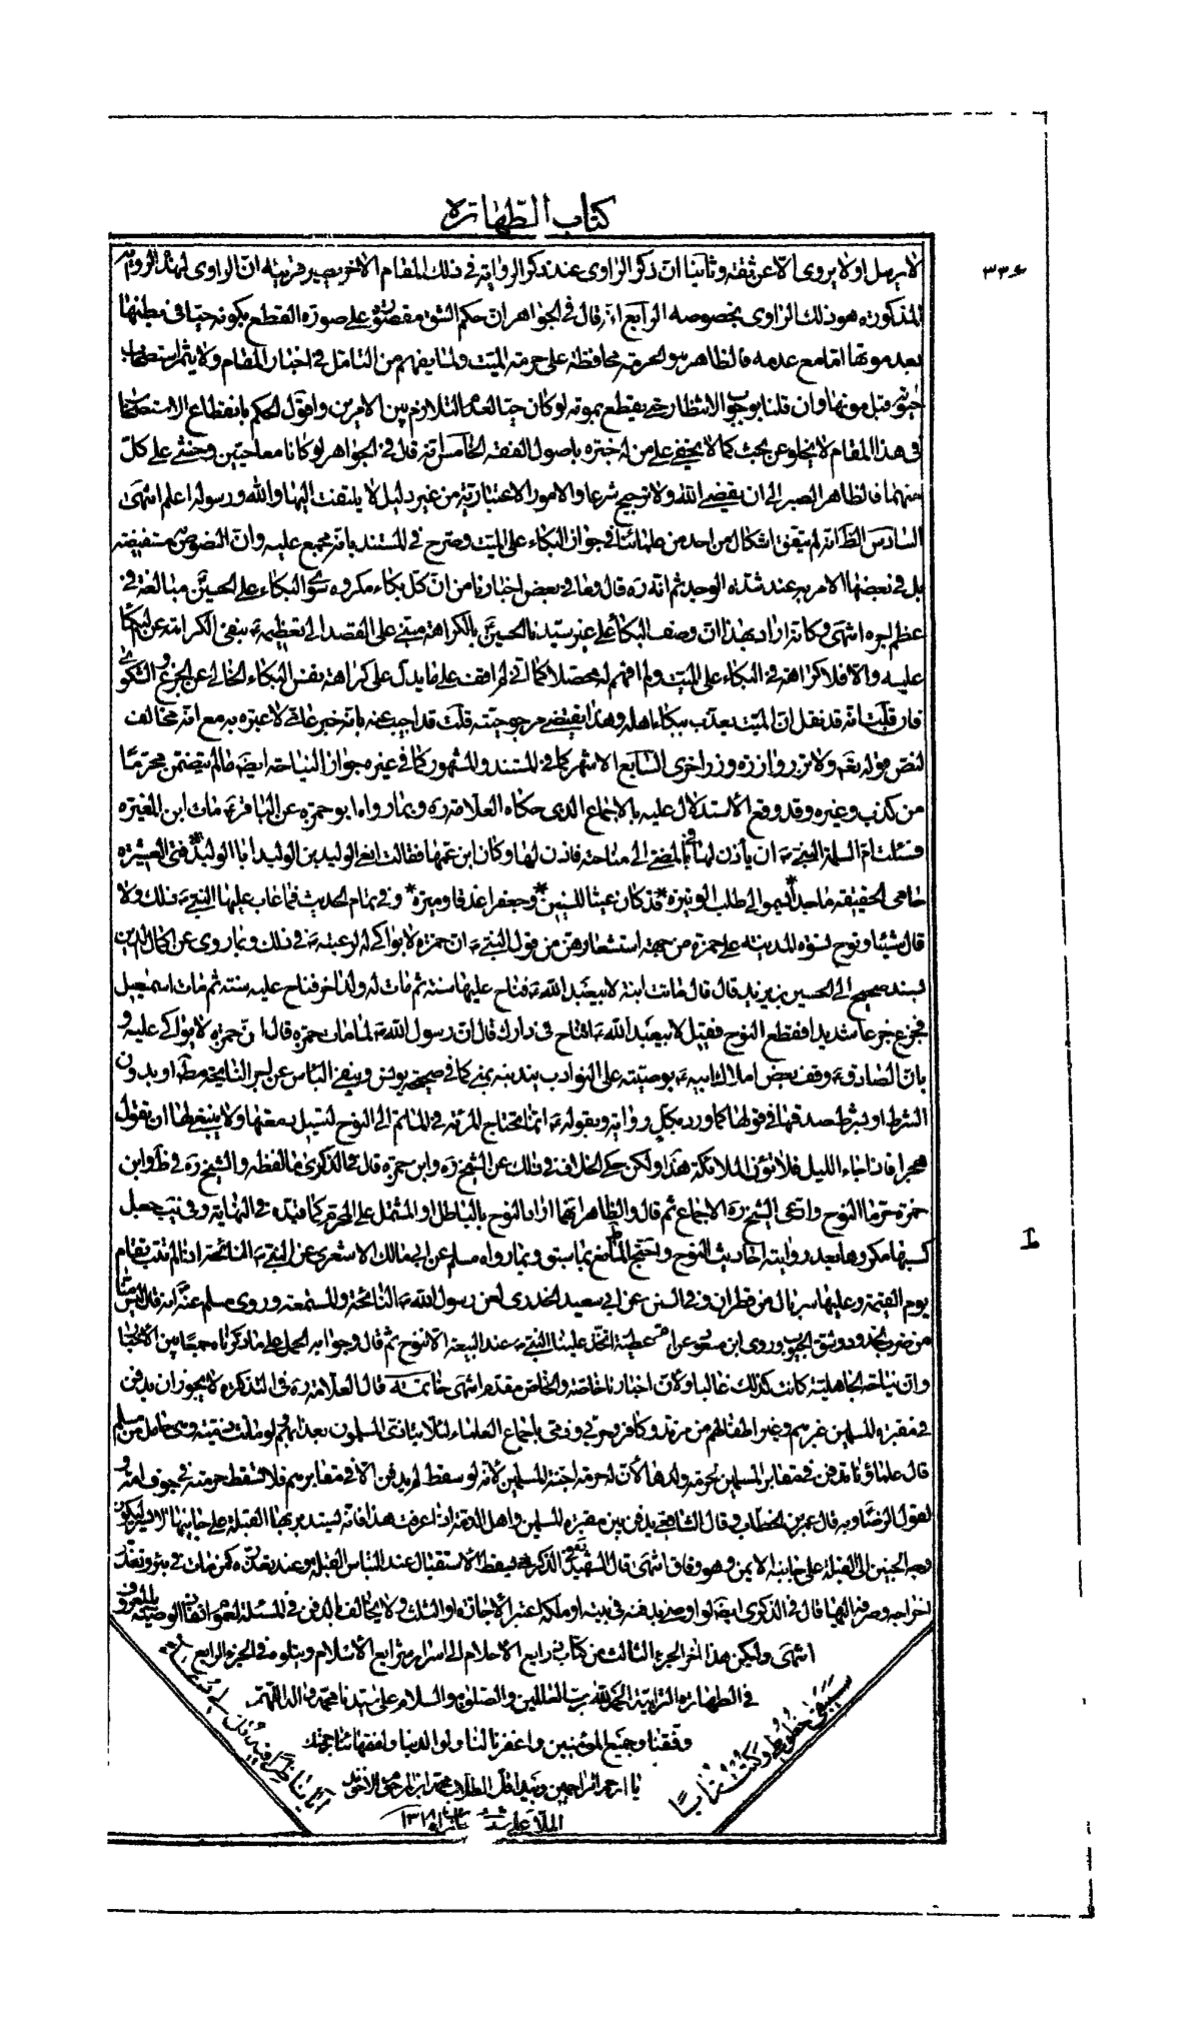 كتاب الطّهارة
٣٣٤
لا يرسل او لا يروى الّا عن ثقة وثانيا انّ ذكر الراوى عند ذكر الرواية فى ذلك المقام الاخر يصير قرينة انّ الراوى لهذه الرواية
المذكورة هو ذلك الراوى بخصوصه الرابع انه قال فى الجواهر ان حكم الشق مقصور على صورة القطع بكونه حيا فى بطنها
بعد موتها امّا مع عدمه فالظاهر هو الحرمة محافظة على حرمة الميّت ولما يفهم من التامل فى اخبار المقام ولا يثمر استصحاب
حيوته قبل موتها وان قلنا بوجوب الانتظار حتى يقطع بموته لو كان حيا لعدم التلازم بين الامرين واقول الحكم بانقطاع الاستصحاب
فى هذا المقام لا يخلو عن بحث كما لا يخفى على من له خبرة باصول الفقه الخامس انّه قال فى الجواهر لو كانا معا حيّين وخشى على كلّ
منهما فالظاهر الصبر الى ان يقضى اللّه ولا ترجيح شرعا والامور الاعتبارية من غير دليل لا يلتفت اليها واللّه ورسوله اعلم انتهى
السّادس الظّ انّه لم يتفق اشكال من احد من علمائنا فى جواز البكاء على الميّت وصرّح فى المستند بانّه مجمع عليه وانّ النصوص مستفيضة
بل فى بعضها الامر به عند شدّة الوجد ثم انّه ره قال وما فى بعض اخبارنا من انّ كلّ بكاء مكروه سوى البكاء على الحسين ع مبالغة فى
عظم اجره انتهى وكانه اراد بهذا انّ وصف البكاء على غير سيّدنا الحسين ع بالكراهة مبتنى على القصد الى تعظيمه ع بنفى الكراهة عن البكاء
عليه والّا فلا كراهة فى البكاء على الميّت ولم افهم له محصلا كما انّى لم اقف على ما يدل على كراهة نفس البكاء الخالى عن الجزع والشكوى
فان قلت انّه قد نقل ان الميّت يعذّب ببكاء اهله وهذا يقتضى مرجوحيّته قلت قد اجيب عنه بانّه خبر عامى لا عبرة به مع انّه مخالف
لنصّ قوله تعم ولا تزر وازرة وزر اخرى السّابع الاشهر كما فى المستند والمشهور كما فى غيره جواز النياحة ايضا ما لم يتضمن محرّما
من كذب وغيره وقد وقع الاستدلال عليه بالاجماع الذى حكاه العلامة ره وبما رواه ابو حمزة عن الباقر ع مات ابن المغيرة
فسئلت امّ السلمة النبى ص ان يأذن لها فى المضىّ الى مناحته فاذن لها وكان ابن عمّها فقالت انعى الوليد بن الوليد ابا الوليد فتى العشيرة
حامى الحقيقة ماجدا يسمو الى طلب الوتيرة * قد كان غيثا للسنين * وجعفرا غدقا وميرة * وفى تمام الحديث فما عاب عليها النبى ص ذلك ولا
قال شيئا ونوح نسوة المدينة على حمزة من جهة استشعارهنّ من قول النبى ص ان حمزة لا بواكى له لرغبته ع فى ذلك وبما روى عن اكمال الدين
بسند صحيح الى الحسين بن يزيد قال قال ماتت ابنة لابيعبد اللّه ع فناح عليها سنة ثم مات له ولد اخر فناح عليه سنة ثم مات اسمعيل
فجزع جزعا شديدا فقطع النوح فقيل لابيعبد اللّه ع اتناح فى دارك قال ان رسول اللّه ص لما مات حمزة قال انّ حمزة لا بواكى عليه و
بان الصّادق ع وقف بعض املاك ابيه ع بوصيّته على النوادب يندبنه بمنى كما فى صحيحة يونس ونفى الباس عن اجر النايحة مطلقا او بدون
الشرط او بشرط صدقها فى قولها كما ورد بكل رواية وبقوله ع انّما تحتاج المرئة فى الماتم الى النوح لتسيل دمعتها ولا ينبغى لها ان تقول
هجرا فاذا جاء الليل فلا تؤذى الملائكة هذا ولكن حكى الخلاف فى ذلك عن الشيخ ره وابن حمزة قال فى الذكرى ما لفظه والشيخ ره فى ط وابن
حمزة حرّما النوح وادّعى الشيخ ره الاجماع ثم قال والظاهر انّهما ارادا النوح بالباطل او المشتمل على المحرّم كما قيّده فى النهاية وفى يب جعل
كسبها مكروها بعد روايته احاديث النوح واحتج المانع بما سبق وبما رواه مسلم عن ابى مالك الاشعرى عن النبى ص النائحة اذا لم تتب تقام
يوم القيمة وعليها سربال من قطران وفى السنن عن ابى سعيد الخدرى لعن رسول اللّه ص النائحة والمستمعة وروى مسلم عنه ص انه قال ليس منّا
من ضرب الخدود وشق الجيوب وروى ابن مسعود عن امّ عطية اخذ علينا النبى ص عند البيعة الّا ننوح ثم قال وجوابه الحمل على ما ذكرناه جمعا بين الاخبار
وان نياحة الجاهلية كانت كذلك غالبا ولان اخبارنا خاصّة والخاص مقدم انتهى خاتمة قال العلامة ره فى التذكرة لا يجوز ان يدفن
فى مقبرة المسلمين غيرهم وغير اطفالهم من مرتد وكافر حربى وذمى باجماع العلماء لئلا يتاذى المسلمون بعذابهم ولو ماتت ذمية وهى حامل من مسلم
قال علماؤنا تدفن فى مقابر المسلمين لحرمة ولدها لان له حرمة اجنة المسلمين لانّه لو سقط لم يدفن الّا فى مقابرهم فلا تسقط حرمته فى جوف امه و
لقول الرضا ع وبه قال عمر بن الخطاب وقال الشافعى يدفن بين مقبرة المسلمين واهل الذمّة اذا عرفت هذا فانّه يستدبر بها القبلة على جانبها الايسر ليكون
وجه الجنين الى القبلة على جانبه الايمن وهو وفاق انتهى قال الشهيد فى الذكرى يسقط الاستقبال عند التباس القبلة وعند تعذّره كمن مات فى بئر وتعذّر
اخراجه وصرفه اليها قال فى الذكرى ايضا لو اوصى بدفنه فى بيته او ملكه اعتبر الاجازة او الثلث ولا يخالف الدفن فى المسبّلة لعموم انفاذ الوصية بالمعروف
انتهى وليكن هذا اخر الجزء الثالث من كتاب ذرايع الاحلام الى اسرار شرايع الاسلام ويتلوه فى الجزء الرابع
فى الطهارة الترابية الحمد للّه ربّ العالمين والصلوة والسلام على سيّدنا محمد واله اللهمّ
وفقنا وجميع المؤمنين واغفر لنا ولوالدينا ولفقهائنا بحقك
يا ارحم الراحمين وبيد اقل الطلاب محمد
الملا على ١٣١٨
سيبقى خطوطى وكنت ترابا
ايا ناظرا فيه